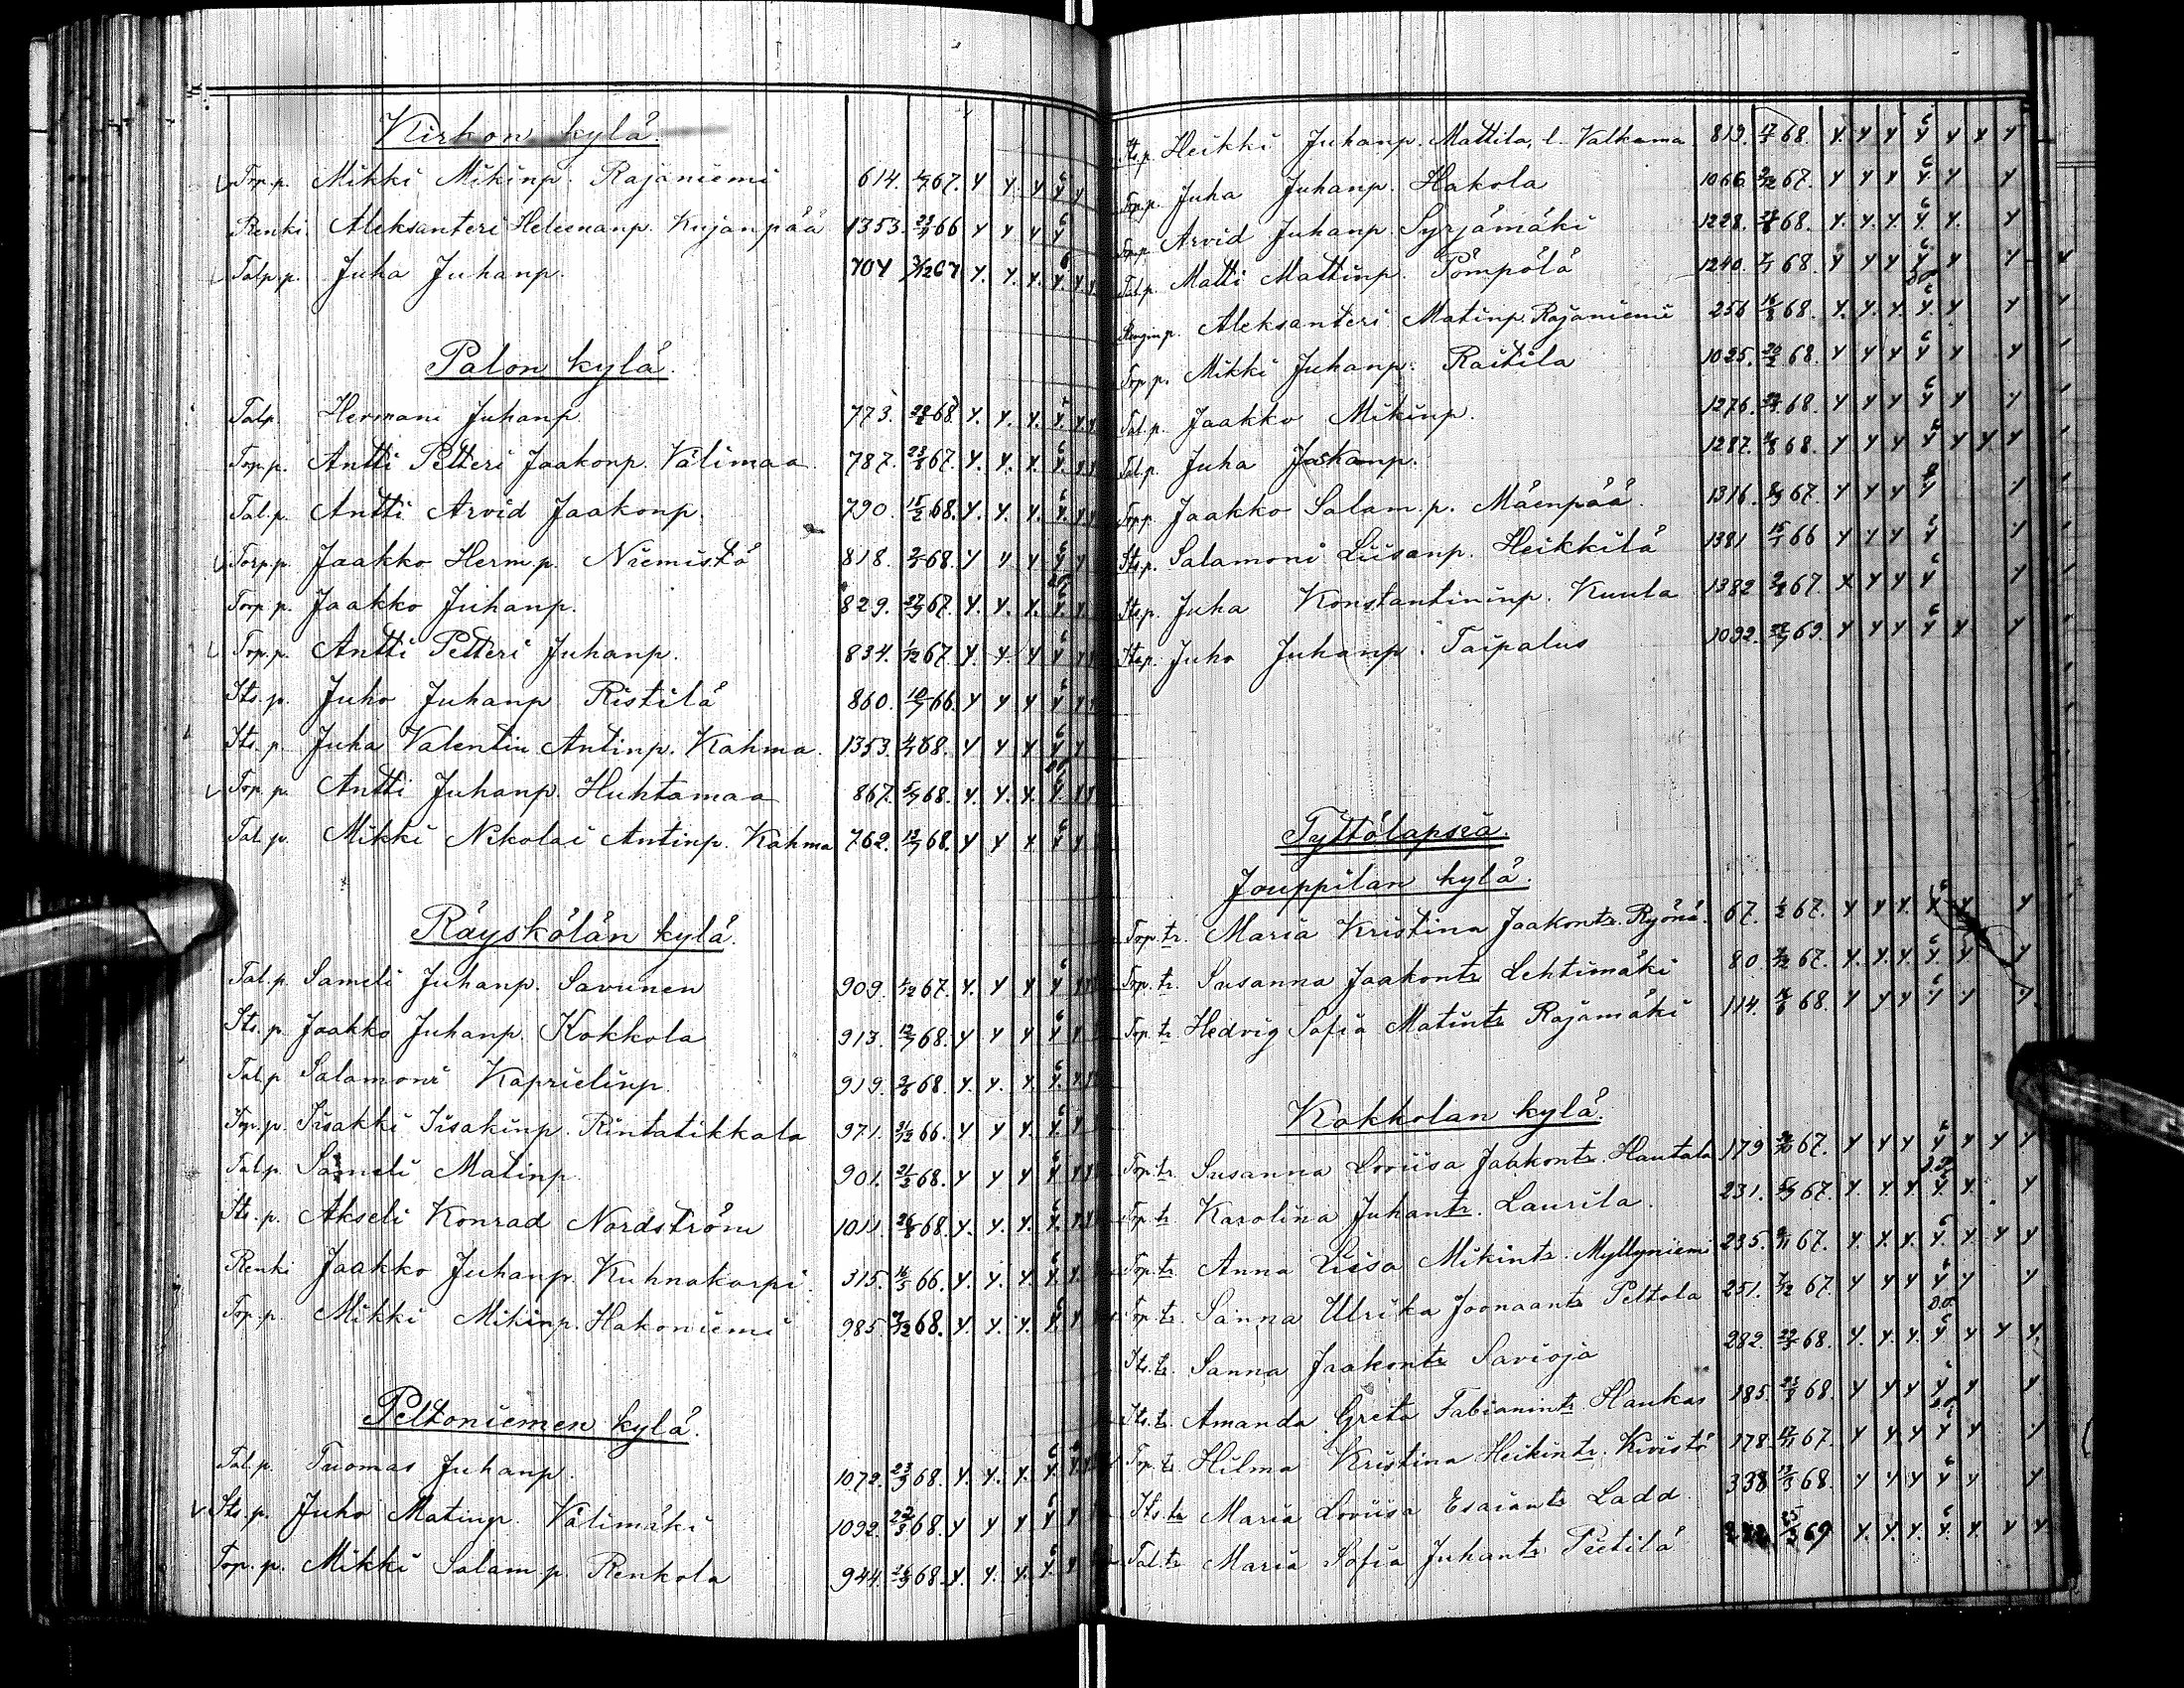 Kirkon kylä.
Torp.p. Mikki Mikinp. Rajaniemi 614. 67. y y. y y y
Renki. Aleksanteri Heleenanp. Kujanpää 1353. 66 y y y y
Talp.p. Juha Juhanp. 704 3/12 67 y. y. y. y. y y
Palon kylä.
Talp. Hermani Juhanp. 773. 68. y. y. y. y. y y
Torp.p. Antti Petteri Jaakonp. Välimaa. 787. 23/8 67. y. y. y. y. y y
Tal.p. Antti Arvid Jaakonp. 790. 15/2 68. y. y. y. y. y y
Torp.p. Jaakko Herm.p. Niemistö 818. 68. y y y y y
Torp.p. Jaakko Juhanp. 829. 27/9 67. y. y. y. y. y
Torp.p. Antti Petteri Juhanp. 834. 1/12 67. y. y. y y y y
Its.p. Juho Juhanp Ristilä 860. 10/7 66. y y y y y
Its.p. Juha Valentin Antinp. Kahma. 1353. 68. y y y y y
Torp.p. Antti Juhanp. Huhtamaa 867. 5/7 68. y. y. y. y. y y
Tal.p. Mikki Nikolai Antinp. Kahma 762. 13/7 68. y y y y y
Räyskölän kylä.
Tal.p. Sameli Juhanp. Savunen 909. 1/12 67. y. y y y
Its.p. Jaakko Juhanp. Kokkola 913. 12/7 68. y y y y y
Tal.p Salamoni Kaprielinp. 919. 68. y. y. y. y. y y
Top.p. Iisakki Iisakinp. Rintatikkala 971. 31/12 66. y y y. y. y
Tal.p. Sameli Matinp 901. 21/2 68. y y y y y
Its.p. Akseli Konrad Nordström 1011. 26/8 68. y. y. y. y. y
Renki Jaakko Juhanp. Kuhnakorpi. 315. 16/5 66. y. y. y. y. y.
Top.p. Mikki Mikinp. Hakoniemi 985. 7/12 68. y. y. y. y. y
Peltoniemen kylä.
Tal.p. Tuomas Juhanp. 1072. 23/3 68. y. y. y. y. y
Its.p. Juho Matinp. Välimäki 1092. 22/3 68. y y y y y
Top.p. Mikki Salam.p. Renkola 944. 68. y. y. y. y. y
Its.p. Heikki Juhanp. Mattila, l. Valkama 819. 68. y. y y y y y y
Top.p. Juha Juhanp. Hakola 1066. 67. y y y y. y y
Top.p. Arvid Juhanp. Syrjämäki 1228. 68. y. y. y. y. y. y
Tal.p. Matti Mattinp. Pömpölä 1240. 68. y y y y y y
Rengin p. Aleksanteri Matinp. Rajaniemi 256 16/8 68. y. y. y. y. y y
Top.p. Mikki Juhanp. Raitila 1025. 68. y y y y y y
Tal.p. Jaakko Mikinp. 1276. 68. y y y y y y
Tal.p. Juha Jaskanp. 1287. 68. y y y y y y y
Top.p. Jaakko Salam.p. Mäenpää. 1316. 67. y y y y y
Its.p. Salamoni Liisanp. Heikkilä 1381 15/1 66 y y y y y
Its.p. Juha Konstantininp. Kuula 1382 67. y y y y y
Its.p. Juho Juhanp. Taipalus 1092. 69. y y y y y y
Tyttölapsia.
Jouppilan kylä.
Top.tr. Maria Kristina Jaakontr. Ryönä. 67. 67. y y y. y y y
Top.tr. Susanna Jaakontr Lehtimäki 80. 67. y. y. y. y. y y
Top.tr Hedvig Sofia Matintr Rajamäki 114. 68. y y y y y y
Kokkolan kylä.
Top.tr. Susanna Loviisa Jaakontr. Hautala 179 67. y y y y y y y
Top.tr Karolina Juhantr. Laurila. 231. 67. y. y. y. y. y. y
Top.tr. Anna Liisa Mikintr. Myllyniemi 235. 67. y. y. y. y. y. y y
Top.tr. Sanna Ulrika Joonaantr Peltola 251. 67. y y y y y y
Its.tr. Sanna Jaakontr Savioja 282. 68. y. y. y. y y y y.
Its.tr. Amanda Greta Fabianintr. Haukas 185. 68. y y y y y y
Top.tr. Hilma Kristina Heikintr. Kivistö 178. 67. y y y y y y
Its.tr Maria Loviisa Esaiantr Ladd 338 68. y y y y y y
Tal.tr Maria Sofia Juhantr Pietilä 25/3 69 y. y. y. y. y. y y